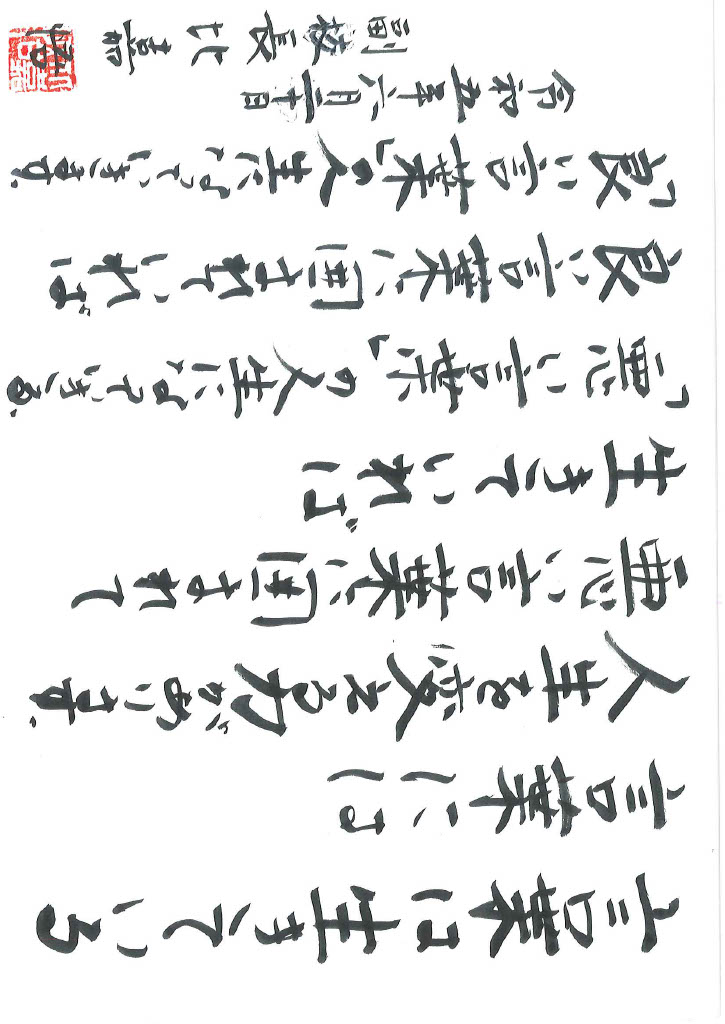 言葉は生きている
言葉には
人生を変える力があります。
悪い言葉に囲まれて
生きていれば
「悪い言葉」の人生になっていきる。
良い言葉に囲まれていれば
「良い言葉」の人生になっていきます。
令和五年六月二十日
副校長比嘉 悟